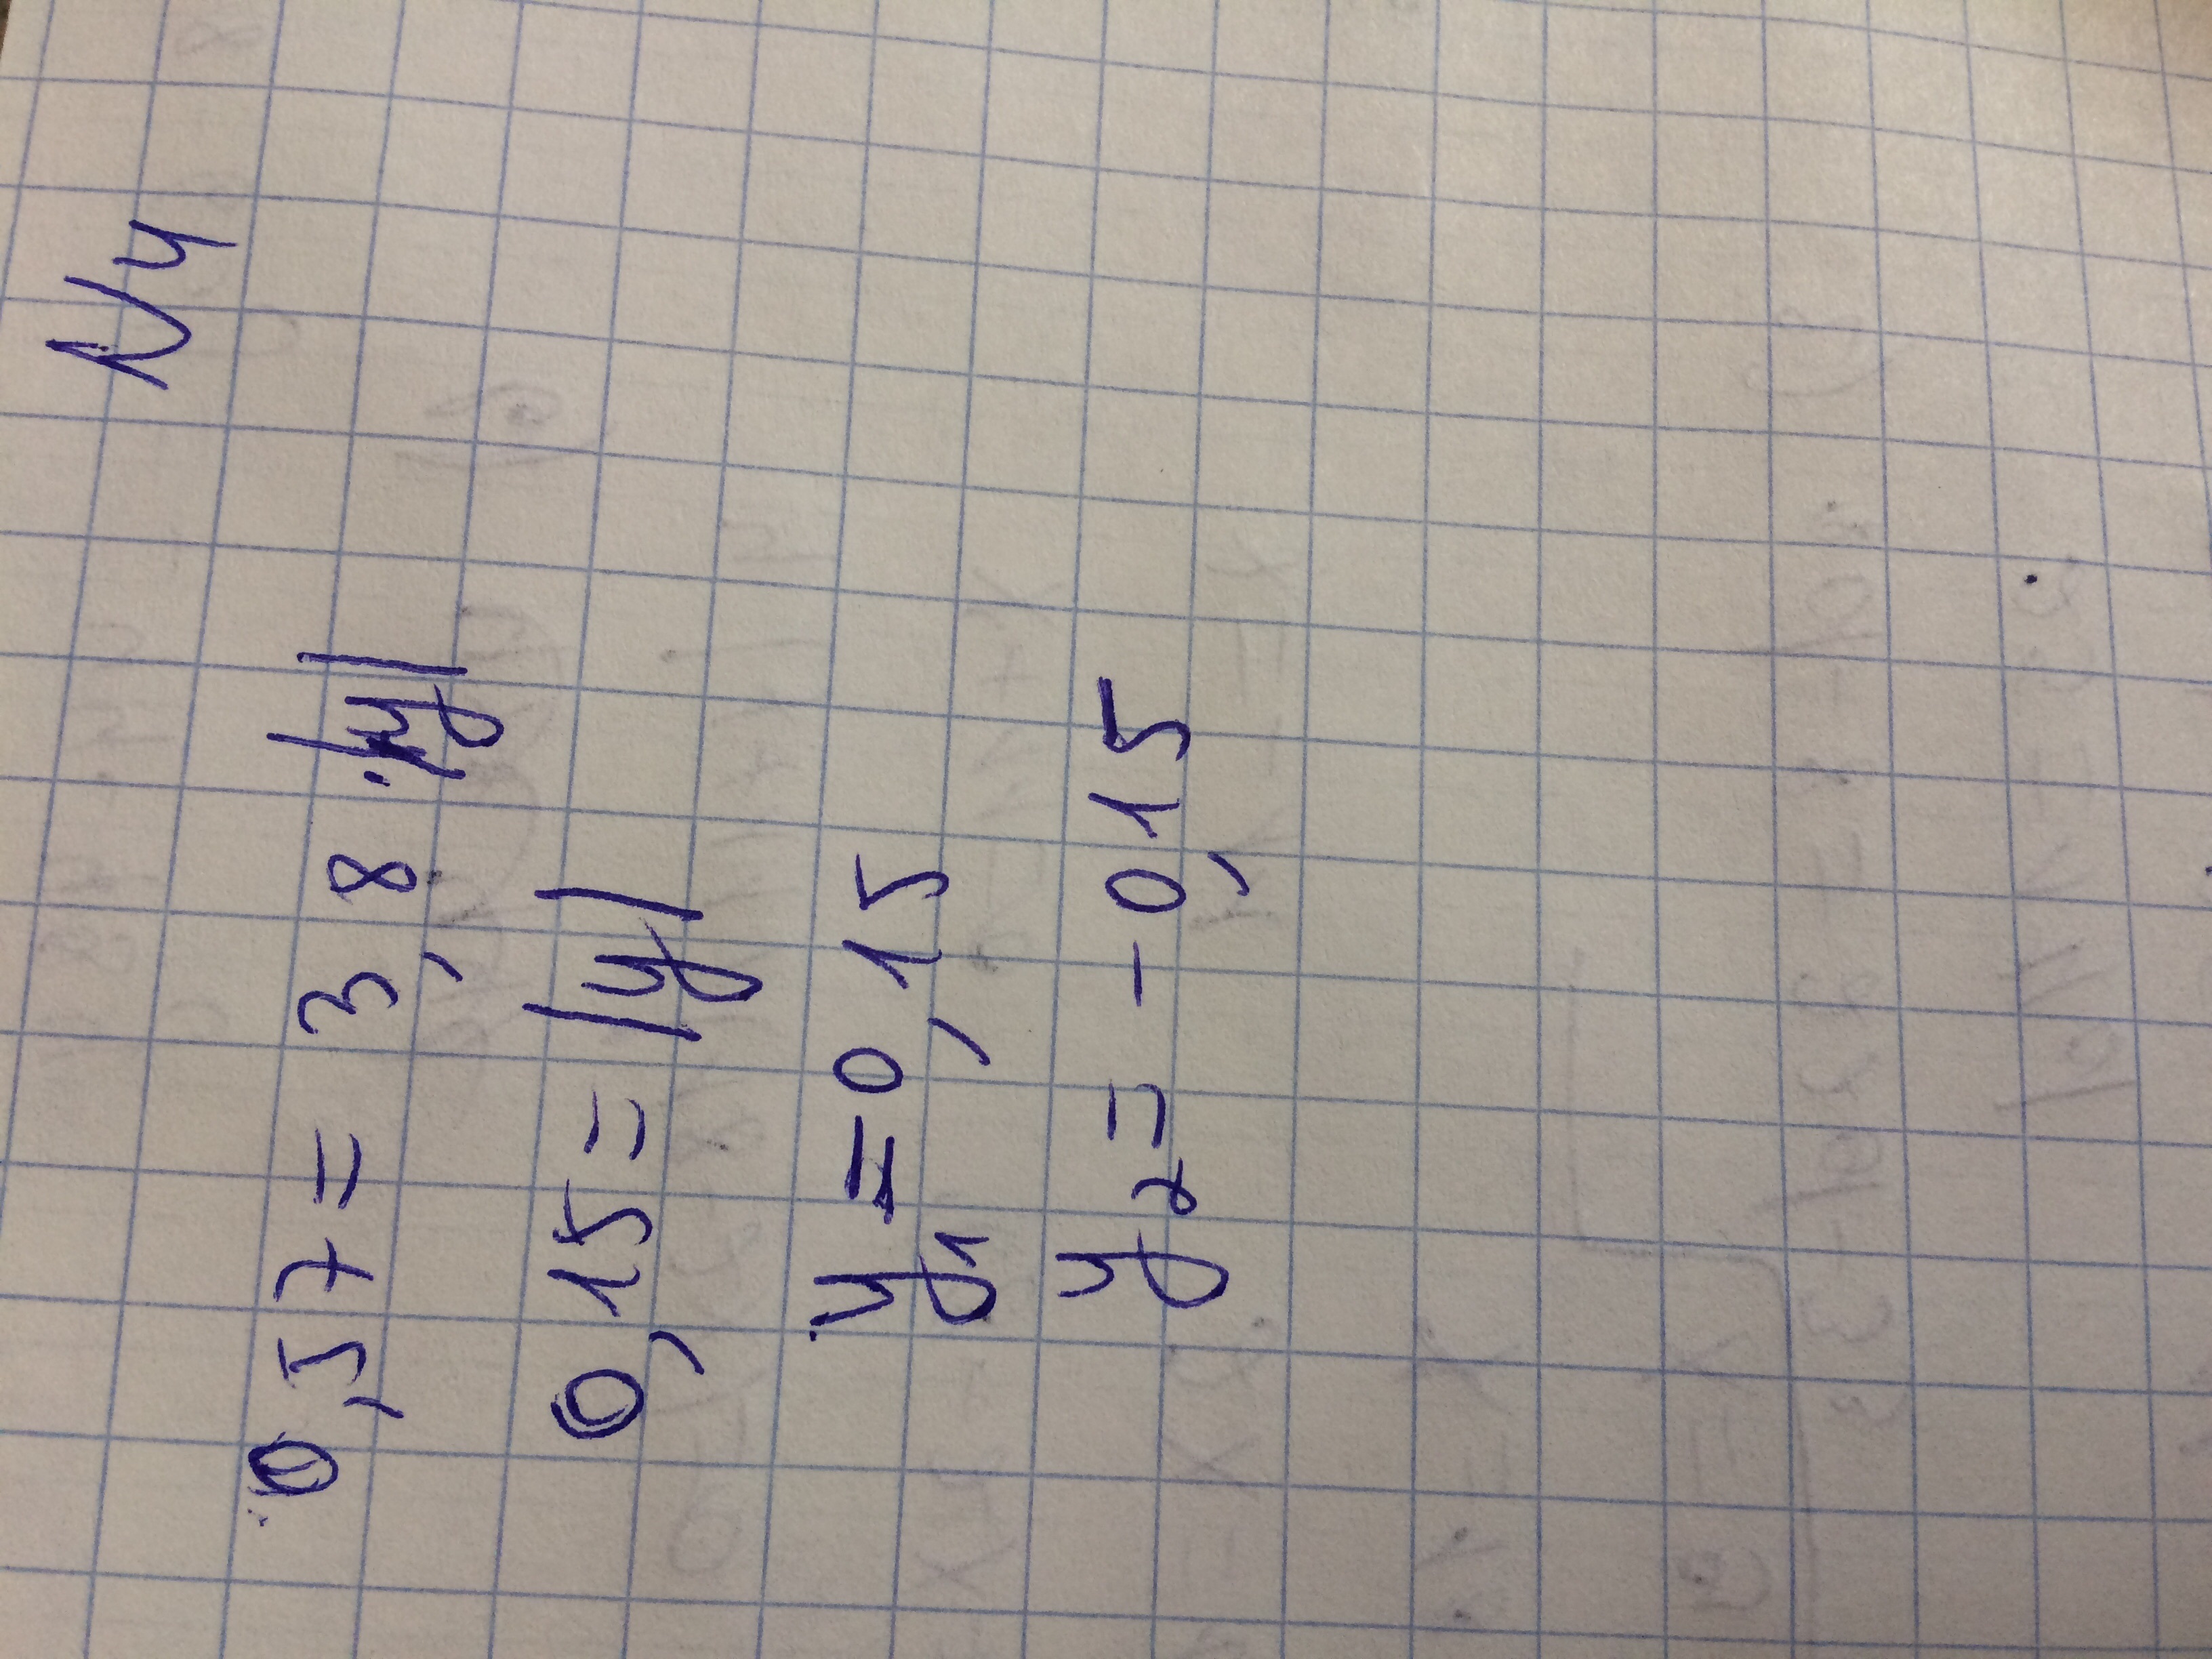 N4
0,57 = 3,8 · |y|
0,15 = |y|
y₁ = 0,15
y₂ = - 0,15